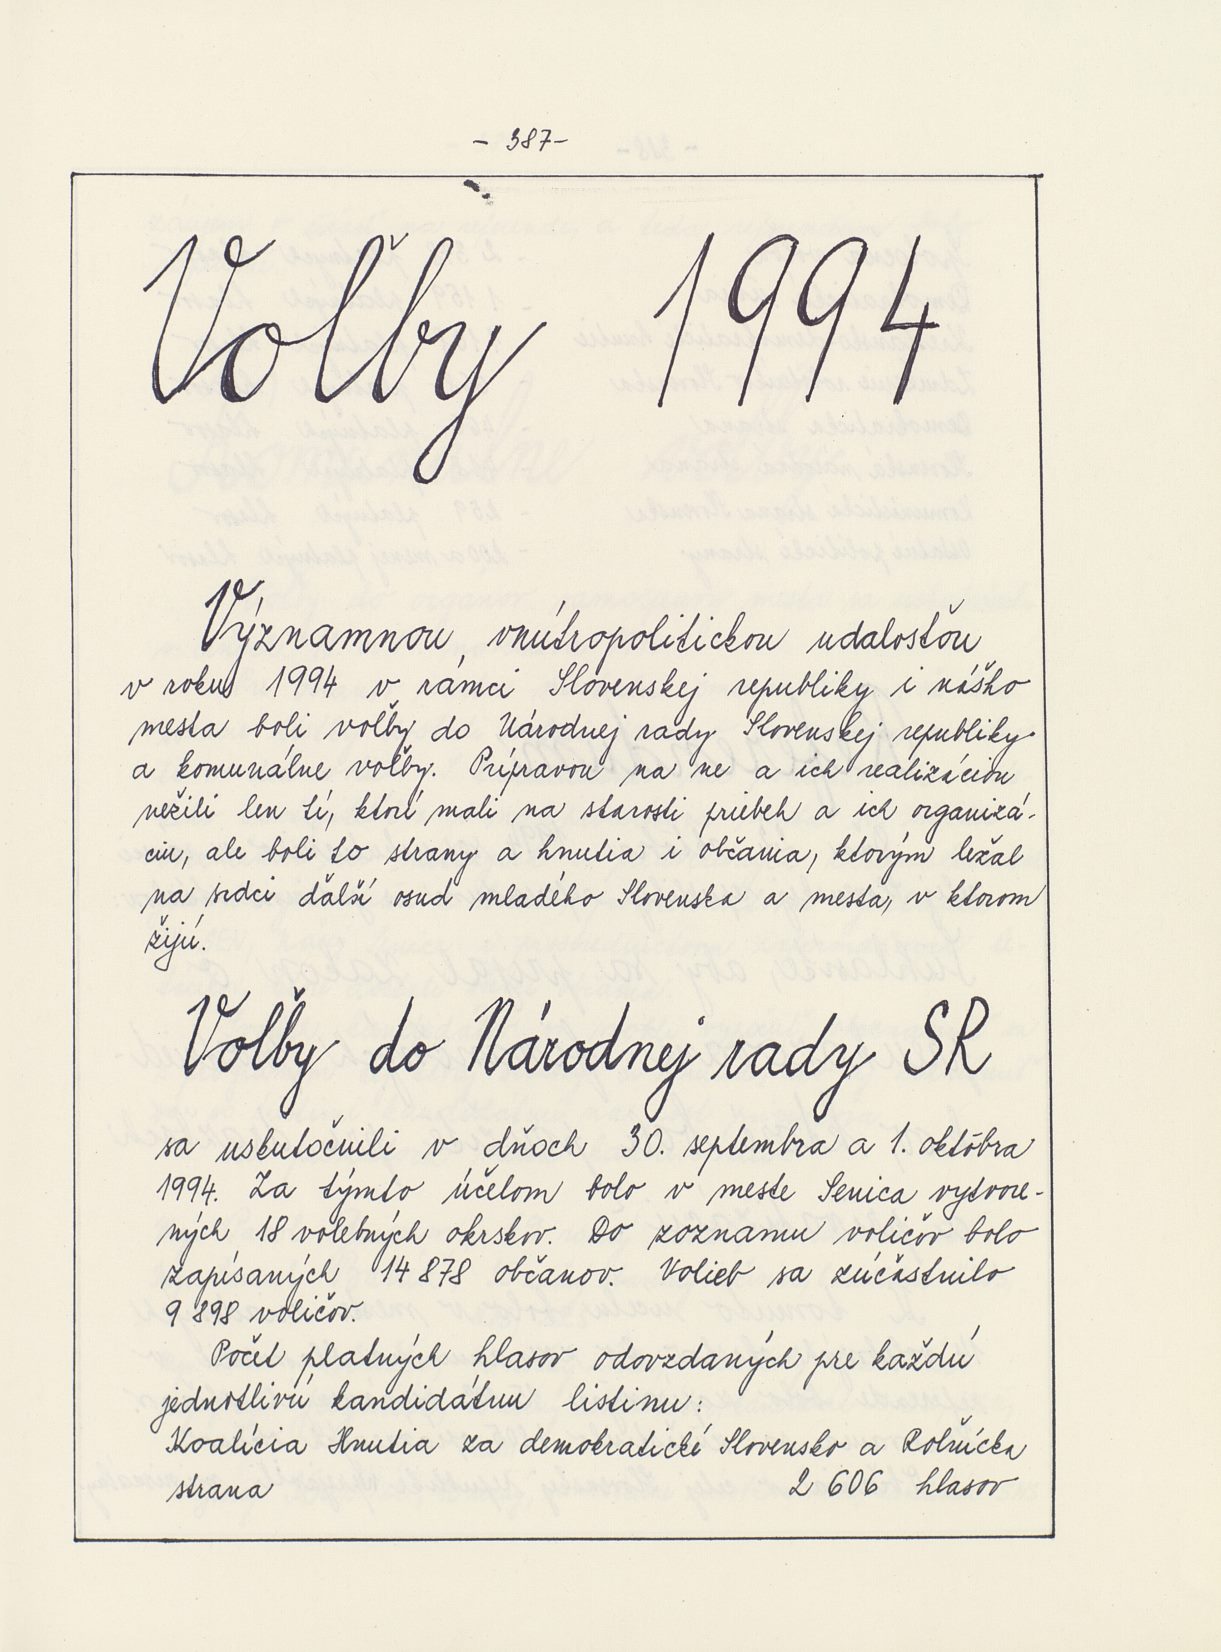 - 387-
Voľby 1994
Významnou vnútropolitickou udalosťou
v roku 1994 v rámci Slovenskej republiky i nášho
mesta boli voľby do Národnej rady Slovenskej republiky
a komunálne voľby. Prípravou na ne a ich realizáciou
nežili len tí, ktorí mali na starosti priebeh a ich organizá-
ciu, ale boli to strany a hnutia i občania, ktorým ležal
na srdci ďalší osud mladého Slovenska a mesta, v ktorom
žijú.
Voľby do Národnej rady SR
sa uskutočnili v dňoch 30. septembra a 1. októbra
1994. Za týmto účelom bolo v meste Senica vytvore-
ných 18 volebných okrskov. Do zoznamu voličov bolo
zapísaných 14 878 občanov. Volieb sa zúčastnilo
9 898 voličov.
Počet platných hlasov odovzdaných pre každú
jednotlivú kandidátnu listinu:
Koalícia Hnutia za demokratické Slovensko a Roľnícka
strana 2 606 hlasov